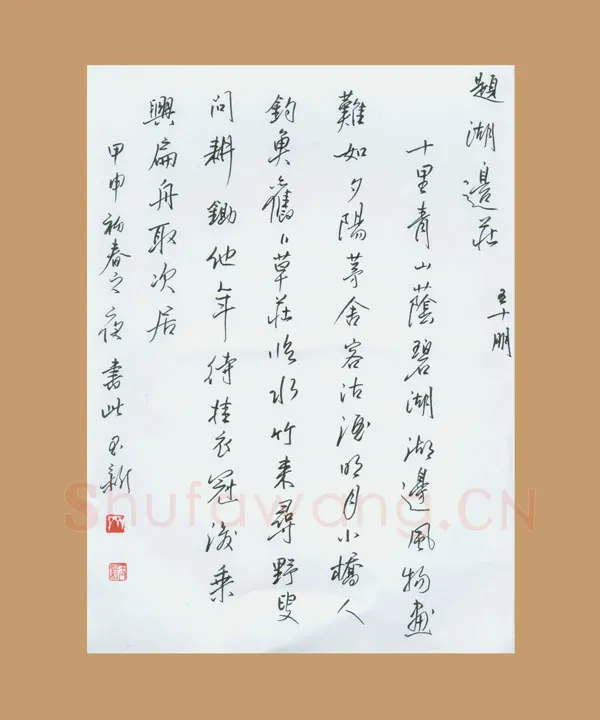 題湖邊莊
王十朋
十里青山蔭碧湖湖邊風物畫
難如夕陽茅舍客沽酒明月小橋人
釣魚舊卜草莊臨水竹來尋野叟
問耕鋤他年待挂衣冠後乘
興扁舟取次居
甲申初春之夜書此
Shufawang.CN